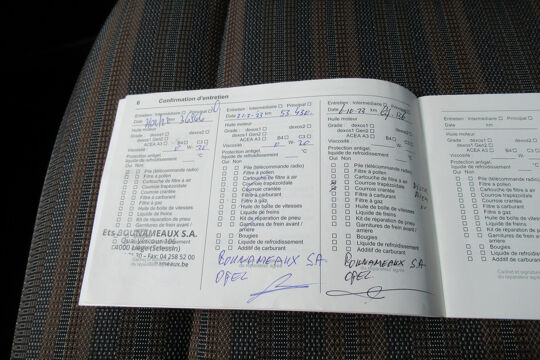 6 Confirmation d'entretien
Principal
Date km
Huile moteur
Grade : dexos1 dexos2
dexos1 Gen2
ACEA A3 B4 C3
Viscosité W-
Protection antigel,
liquide de refroidissement °C
Oui Non
Pile (télécommande radio)
Filtre à pollen
Cartouche de filtre à air
Courroie trapézoïdale
Courroie crantée
Filtre à carburant
Filtre à gaz
Huile de boîte de vitesses
Liquide de freins
Kit de réparation de pneu
Garnitures de frein avant /
arrière
Ets BOUNAMEAUX S.A.
Fax: 04 258 52 00
Entretien : Intermédiaire Principal
Date km 53.430
Huile moteur
Grade : dexos1 dexos2
dexos1 Gen2
ACEA A3 B4 C3
Viscosité 0 W- 20
Protection antigel,
liquide de refroidissement °C
Oui Non
Pile (télécommande radio)
Filtre à pollen
Cartouche de filtre à air
Courroie trapézoïdale
Courroie crantée
Filtre à carburant
Filtre à gaz
Huile de boîte de vitesses
Liquide de freins
Kit de réparation de pneu
Garnitures de frein avant /
arrière
Bougies
Liquide de refroidissement
Additif de carburant
BOUNAMEAUX SA
OPEL
Entretien : Intermédiaire Principal
Date km
Huile moteur
Grade : dexos1 dexos2
dexos1 Gen2
ACEA A3 B4 C3
Viscosité W-
Protection antigel,
liquide de refroidissement °C
Oui Non
Pile (télécommande radio)
Filtre à pollen
Cartouche de filtre à air
Courroie trapézoïdale
Courroie crantée
Filtre à carburant
Filtre à gaz
Huile de boîte de vitesses
Liquide de freins
Kit de réparation de pneu
Garnitures de frein avant /
arrière
Bougies
Liquide de refroidissement
Additif de carburant
BOUNAMEAUX SA
OPEL
Entretien : Intermédiaire
Date km
Huile moteur
Grade : dexos1
dexos1 Gen2
ACEA A3
Viscosité
Protection antigel,
liquide de refroidissement
Oui Non
Pile (télécommande radio)
Filtre à pollen
Cartouche de filtre à air
Courroie trapézoïdale
Courroie crantée
Filtre à carburant
Filtre à gaz
Huile de boîte de vitesses
Liquide de freins
Kit de réparation de pneu
Garnitures de frein avant /
arrière
Bougies
Liquide de refroidissement
Additif de carburant